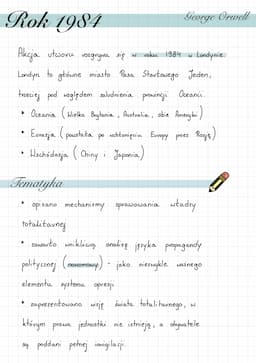 Rok 1984
George Orwell
Akcja utworu rozgrywa się w roku 1984 w Londynie.
Londyn to główne miasto Pasa Startowego Jeden,
trzeciej pod względem zaludnienia prowincji Oceanii.
• Oceania (Wielka Brytania, Australia, obie Ameryki)
• Eurazja (powstała po wchłonięciu Europy przez Rosję)
• Wschódazja (Chiny i Japonia)
Tematyka
• opisano mechanizmy sprawowania władzy
totalitarnej
• zawarto wnikliwą analizę języka propagandy
politycznej (nowomowy) - jako niezwykle ważnego
elementu systemu opresji
• zaprezentowano wizję świata totalitarnego, w
którym prawa jednostki nie istnieją, a obywatele
są poddani pełnej inwigilacji.